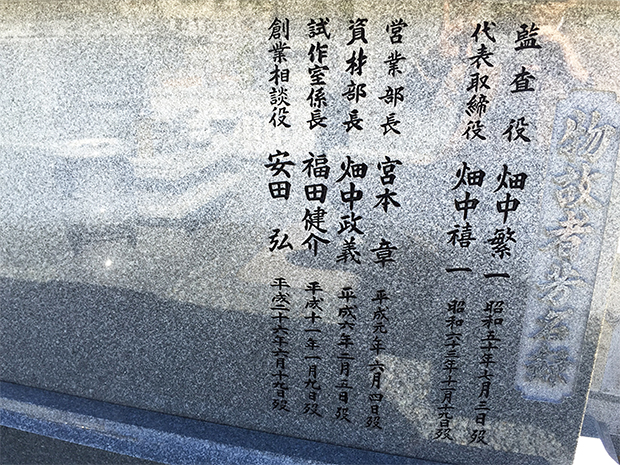 物故者芳名録
監査役 畑中繁一 昭和五十年七月二日歿
代表取締役 畑中禧一 昭和六十三年十月十九日歿
営業部長 宮本章 平成九年六月四日歿
資材部長 畑中政義 平成六年二月五日歿
試作室係長 福田健介 平成十一年一月九日歿
創業相談役 安田弘 平成二十六年六月十九日歿